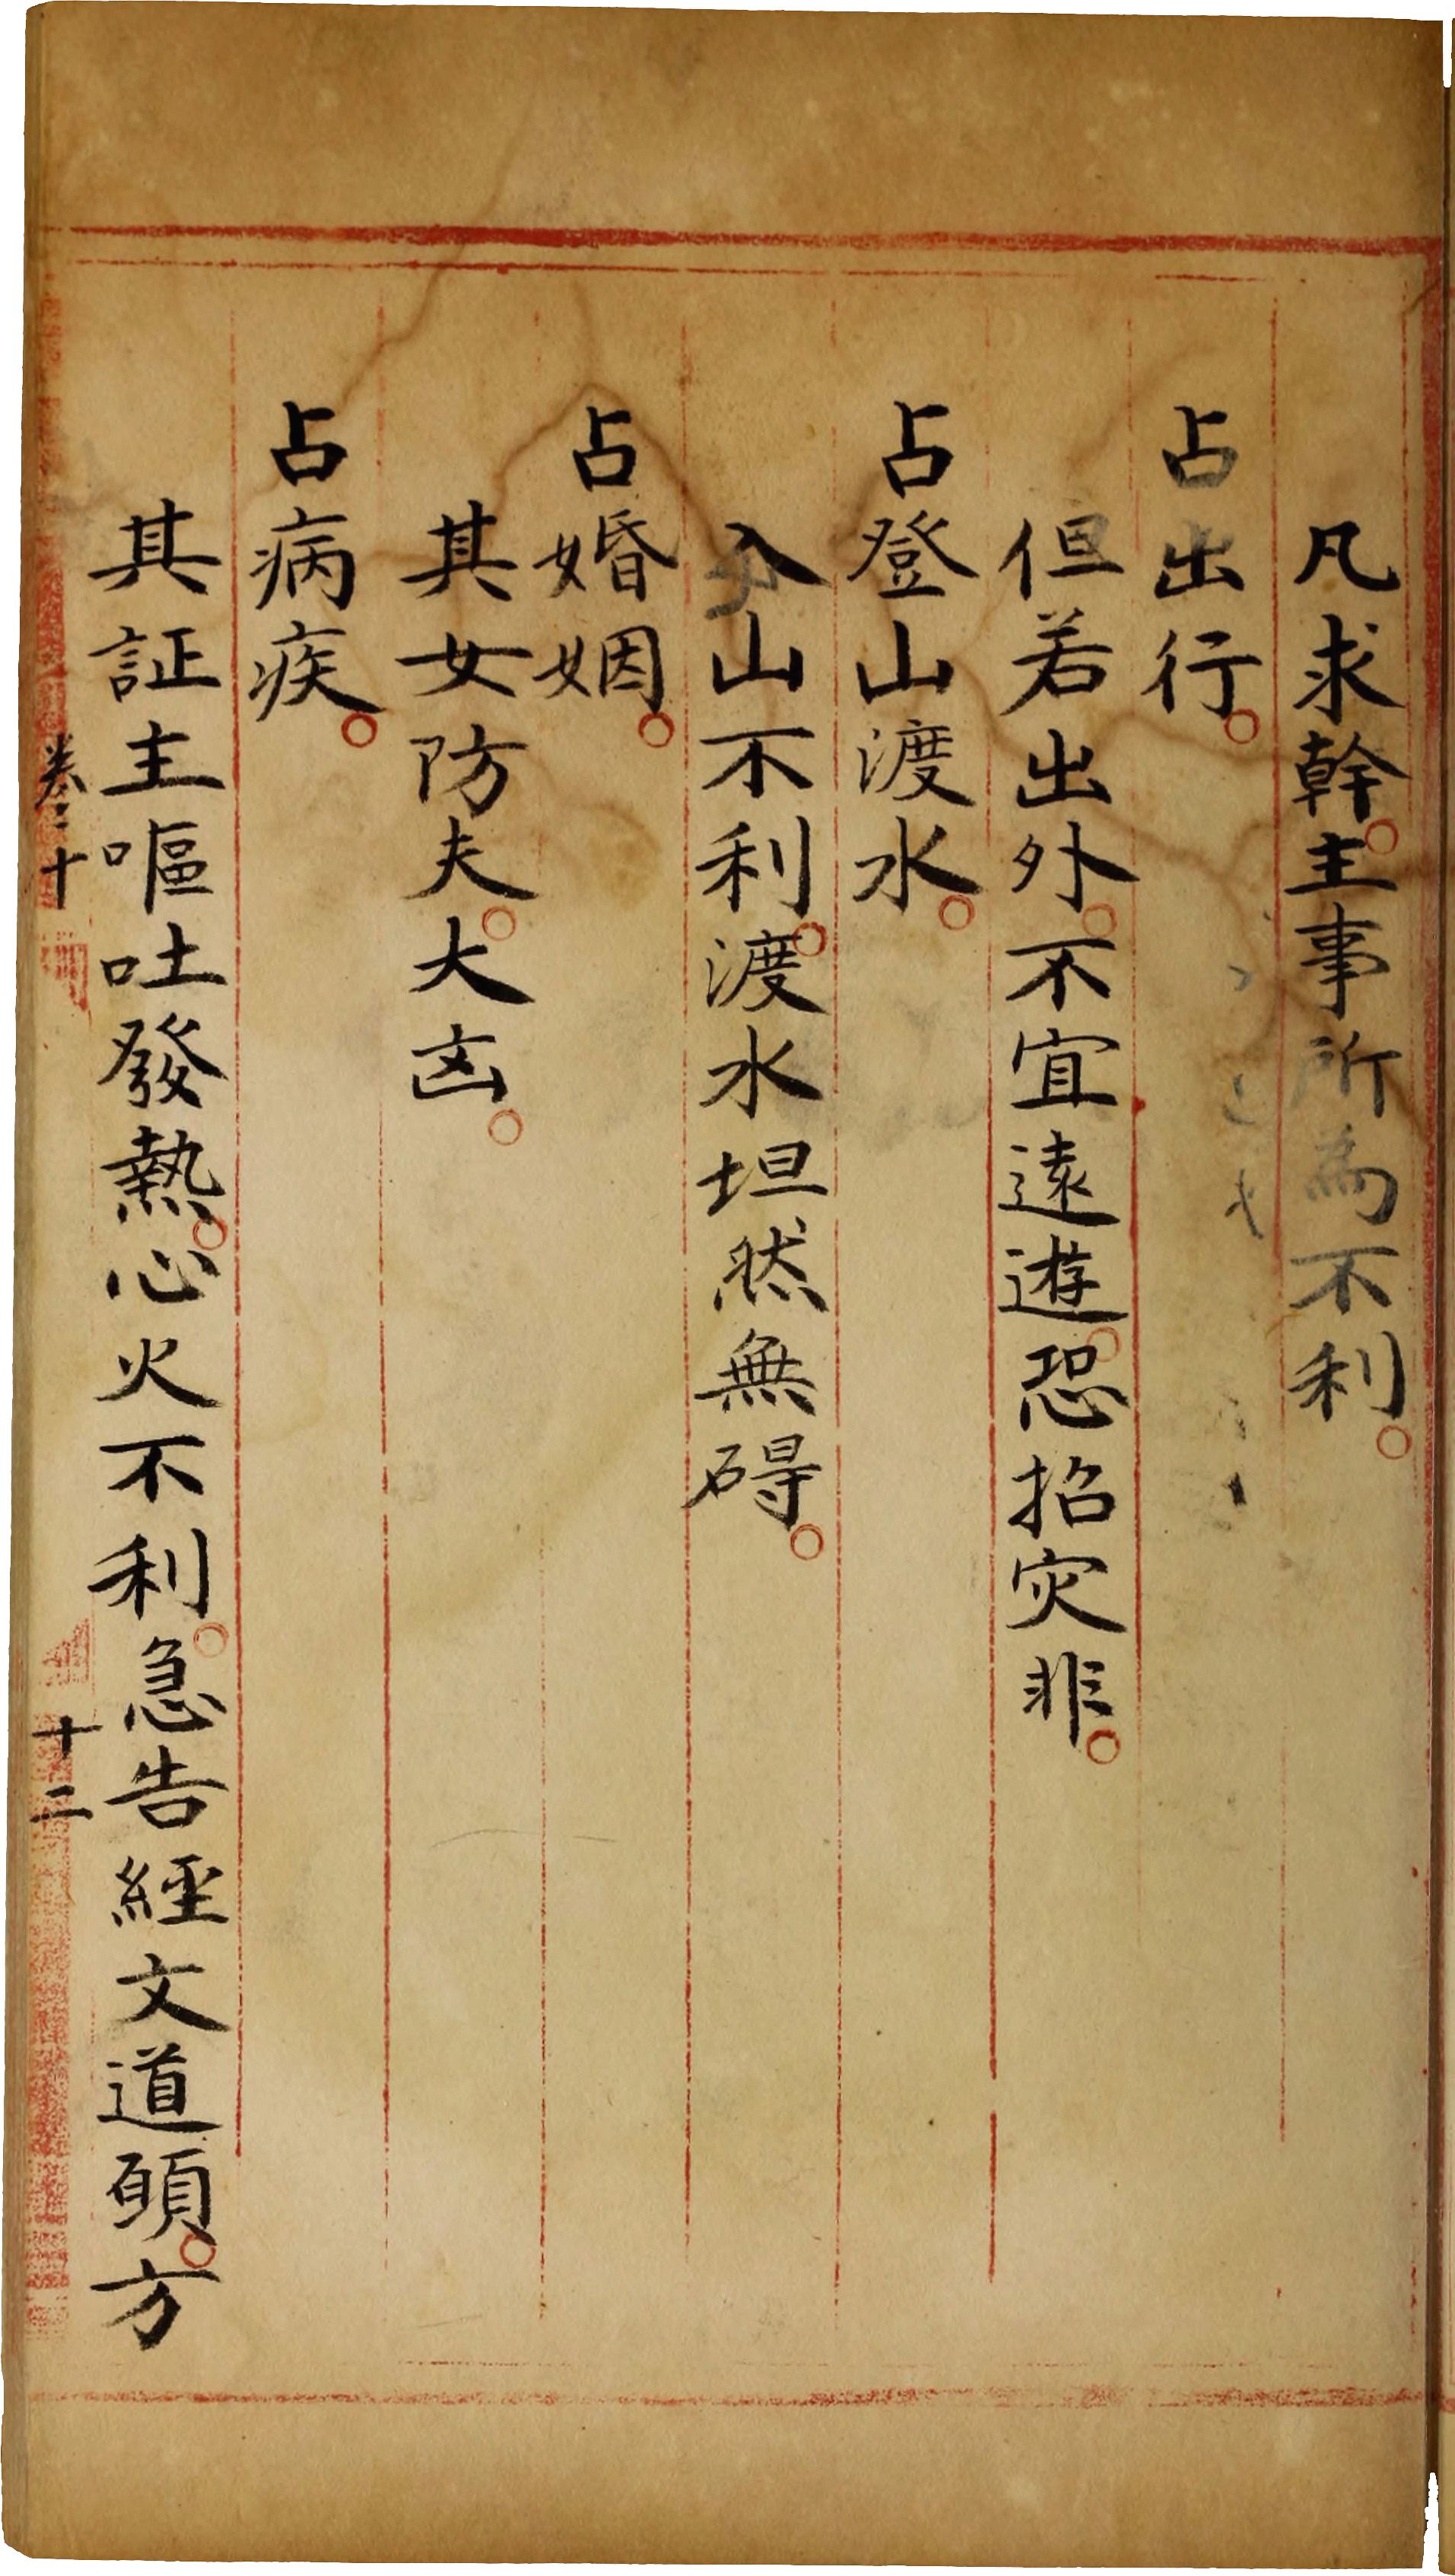 凡求幹主事所為不利
占出行
但若出外不宜遠遊恐招灾非
占登山渡水
入山不利渡水坦然無碍
占婚姻
其女防夫大凶
占病疾
其証主嘔吐發熱心火不利急告經文道願方
卷之十
十二